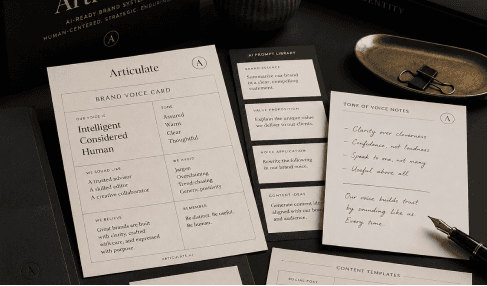 AI-READY BRAND SYSTEM
HUMAN-CENTERED. STRATEGIC.
A
Articulate
A
BRAND VOICE CARD
OUR VOICE IS
Intelligent
Considered
Human
TONE
Assured
Warm
Clear
Thoughtful
WE SOUND LIKE
A trusted advisor
A skilled editor
A creative collaborator
WE AVOID
Jargon
Overclaiming
Trend-chasing
Generic positivity
WE BELIEVE
Great brands are built
with clarity, crafted
with care, and expressed
with purpose.
REMEMBER
Be distinct. Be useful.
Be human.
ARTICULATE.AI
AI PROMPT LIBRARY
BRAND ESSENCE
Summarize our brand
in a clear, compelling
statement.
VALUE PROPOSITION
Explain the unique value
we deliver to our clients.
VOICE APPLICATION
Rewrite the following
in our brand voice.
CONTENT IDEAS
Generate content
aligned with our
and audience.
TONE OF VOICE NOTES
A
- Clarity over cleverness
- Confidence, not loudness
- Speak to one, not many
- Useful above all
Our voice builds trust
by sounding like us.
Every time.
CONTENT TEMPLATES